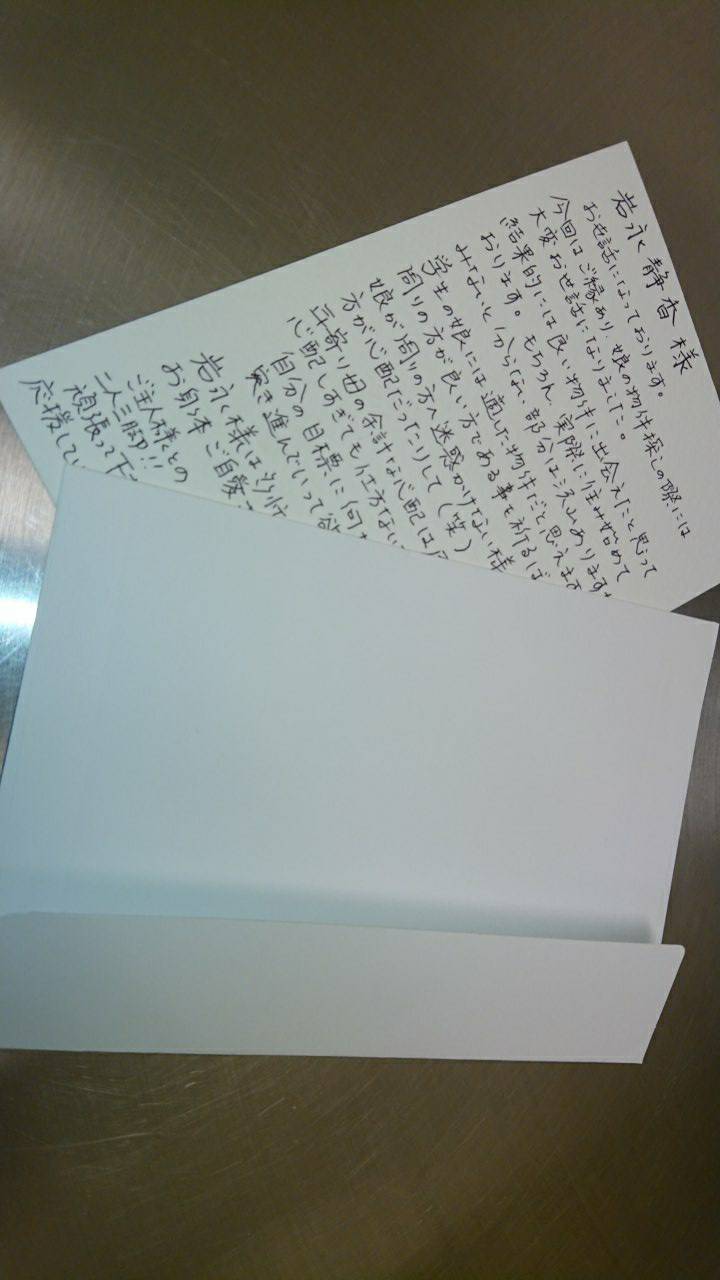 岩永静香様
お世話になっております。
今回はご縁あり、娘の物件探しの際には
大変お世話になりました。
結果的には良い物件に出会えたと思って
おります。もちろん、実際に住み始めて
みないと分からない部分は沢山あります
学生の娘には適した物件だと思えます
周りの方が良い方である事を祈るば
娘が周りの方へ迷惑かけない様
方が心配だったりして(笑)
年寄り母の余計な心配は
心配しすぎても仕方ない
自分の目標に向
突き進んでいって欲
岩永様は
お身体ご自愛
ご主人様との
二人三脚!!
頑張って下
応援してい